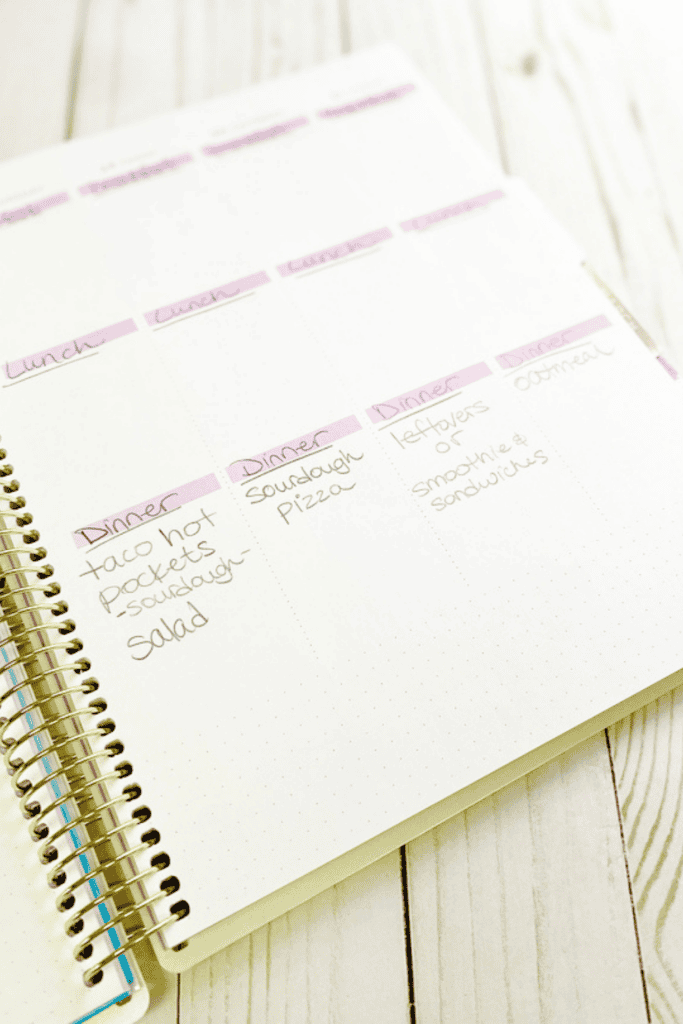 Lunch
Lunch
Lunch
Dinner
taco hot
pockets
-sourdough-
salad
Dinner
sourdough
pizza
Dinner
leftovers
or
smoothie &
sandwiches
Dinner
oatmeal